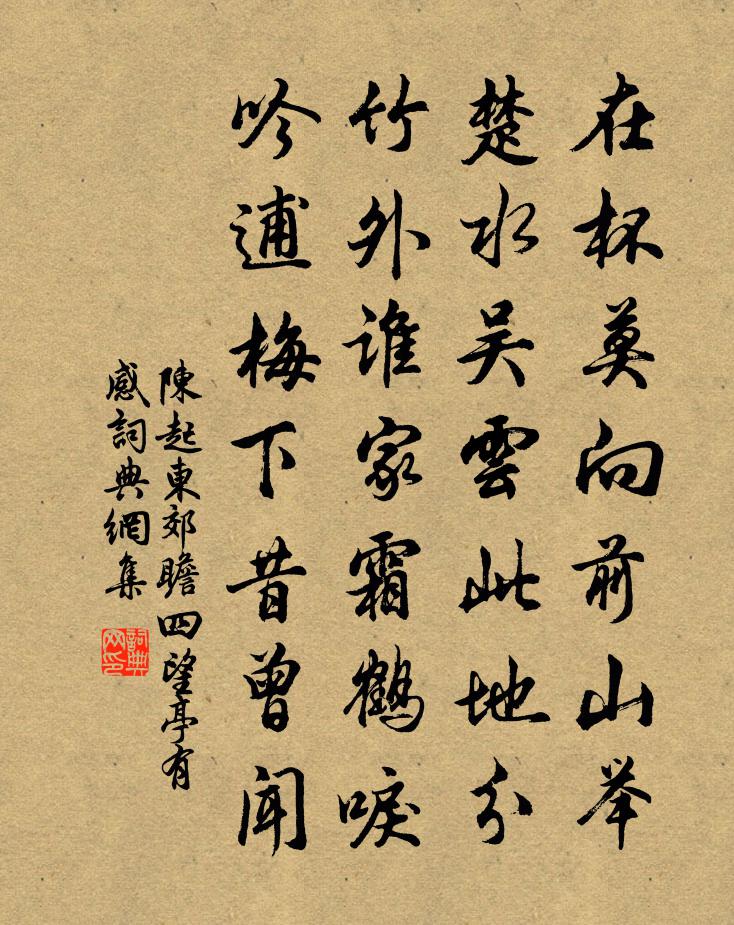 在杯莫向前山举
楚水吴雲此地分
竹外谁家霜鶴唳
吟逋梅下昔曾闻
陳起東郊瞻四望亭有
感詞典網集
詞典
网印